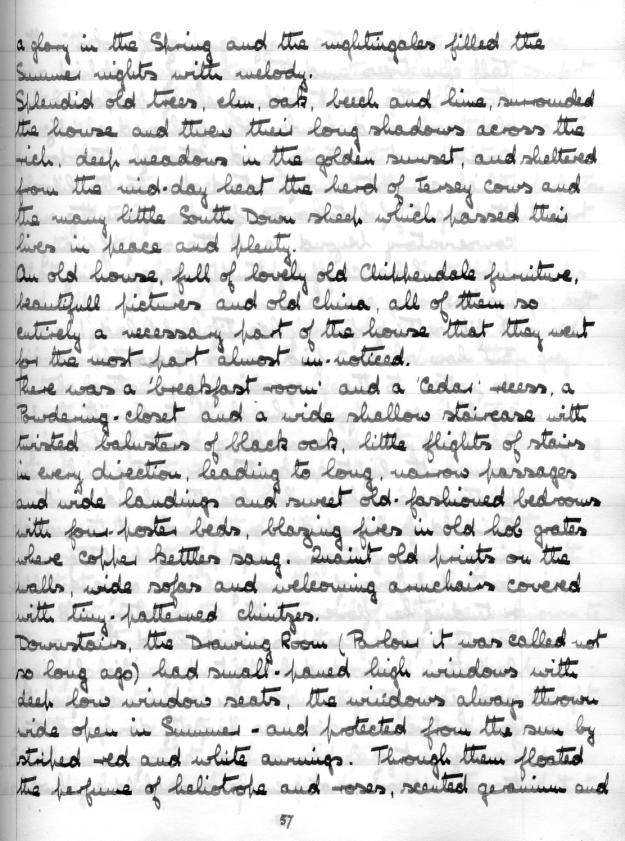 a glory in the Spring and the nightingales filled the
Summer nights with melody.
Splendid old trees, elm, oak, beech and lime, surrounded
the house and threw their long shadows across the
rich, deep meadows in the golden sunset, and sheltered
from the mid-day heat the herd of Jersey cows and
the many little South Down sheep which passed their
lives in peace and plenty.
An old house, full of lovely old Chippendale furniture,
beautifull pictures and old china, all of them so
entirely a necessary part of the house that they went
for the most part almost un-noticed.
There was a 'breakfast-room' and a 'Cedar' recess, a
Powdering-closet and a wide shallow staircase with
twisted balusters of black oak, little flights of stairs
in every direction, leading to long, narrow passages
and wide landings and sweet old-fashioned bedrooms
with four-poster beds, blazing fires in old hob grates
where copper kettles sang. Quaint old prints on the
walls, wide sofas and welcoming armchairs covered
with tiny-patterned chintzes.
Downstairs, the Drawing Room (Parlour it was called not
so long ago) had small-paned high windows with
deep low window seats, the windows always thrown
wide open in Summer - and protected from the sun by
striped red and white awnings. Through them floated
the perfume of heliotrope and roses, scented geranium and
57